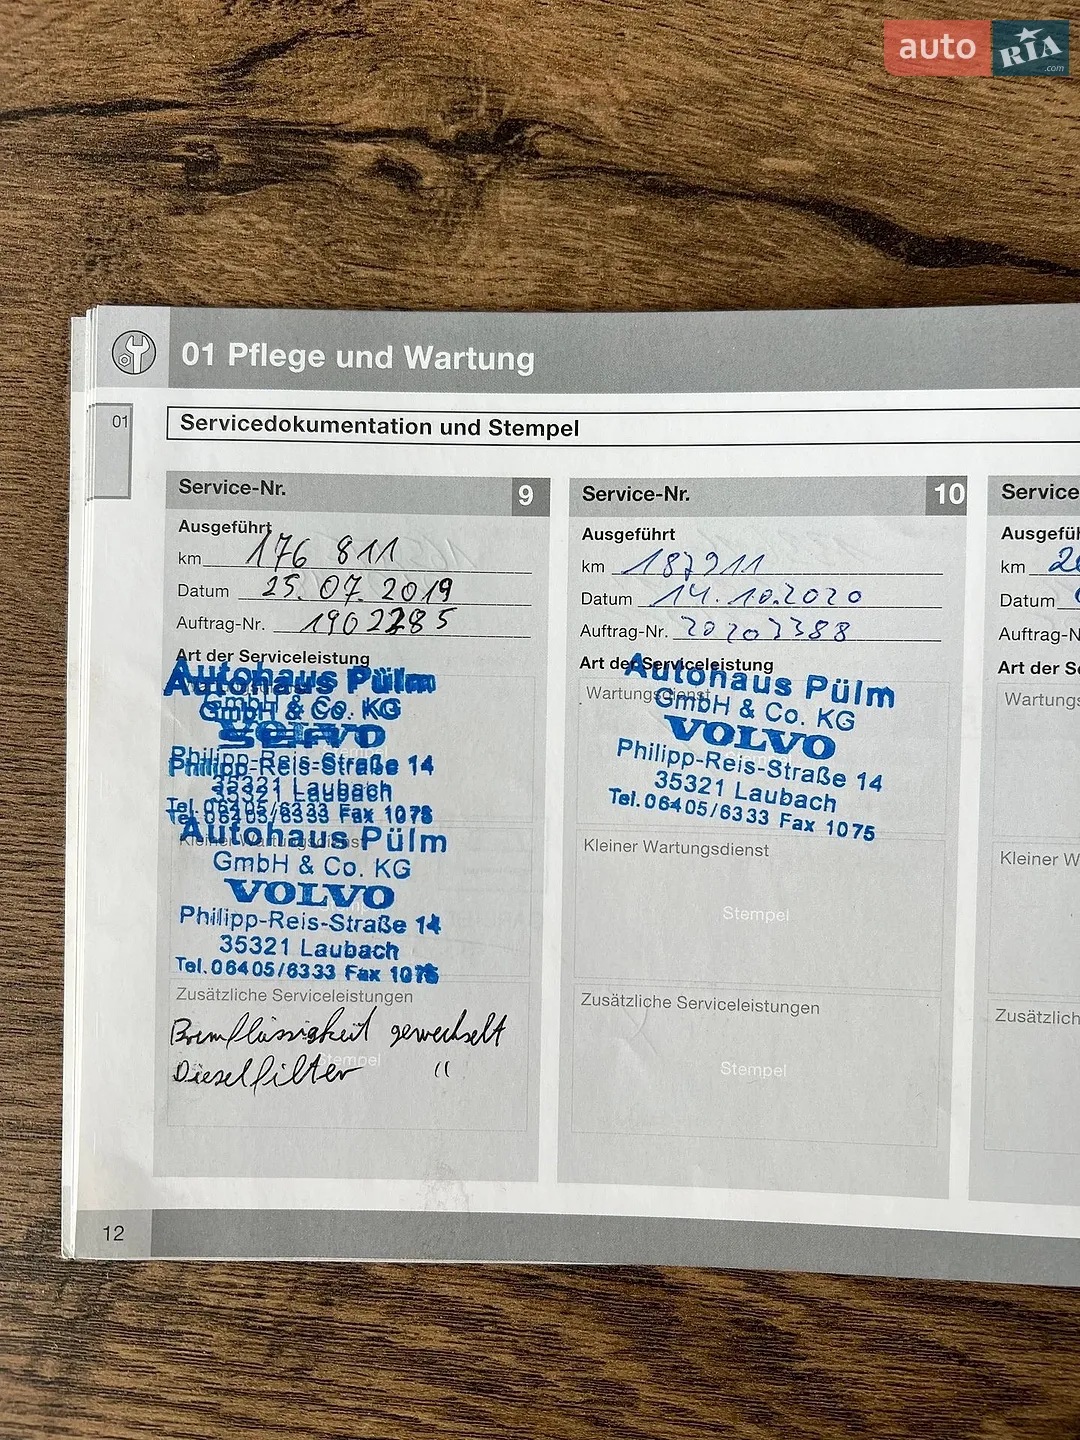 auto RIA.com
01 Pflege und Wartung
01
Servicedokumentation und Stempel
Service-Nr. 9
Ausgeführt
km 176 811
Datum 25.07.2019
Auftrag-Nr. 1902285
Art der Serviceleistung
Autohaus Pülm
GmbH & Co. KG
VOLVO
Philipp-Reis-Straße 14
35321 Laubach
Tel. 06405/6333 Fax 1075
Kleiner Wartungsdienst
Autohaus Pülm
GmbH & Co. KG
VOLVO
Philipp-Reis-Straße 14
35321 Laubach
Tel. 06405/6333 Fax 1075
Zusätzliche Serviceleistungen
Bremflüssigkeit gewechselt
Stempel
Dieselfilter "
Service-Nr. 10
Ausgeführt
km 187911
Datum 14.10.2020
Auftrag-Nr. 20202388
Art der Serviceleistung
Wartungsdienst
Autohaus Pülm
GmbH & Co. KG
VOLVO
Philipp-Reis-Straße 14
35321 Laubach
Tel. 06405/6333 Fax 1075
Kleiner Wartungsdienst
Stempel
Zusätzliche Serviceleistungen
Stempel
Service
Ausgefüh
km 20
Datum
Auftrag-N
Art der Se
Wartungs
Kleiner W
Zusätzlich
12